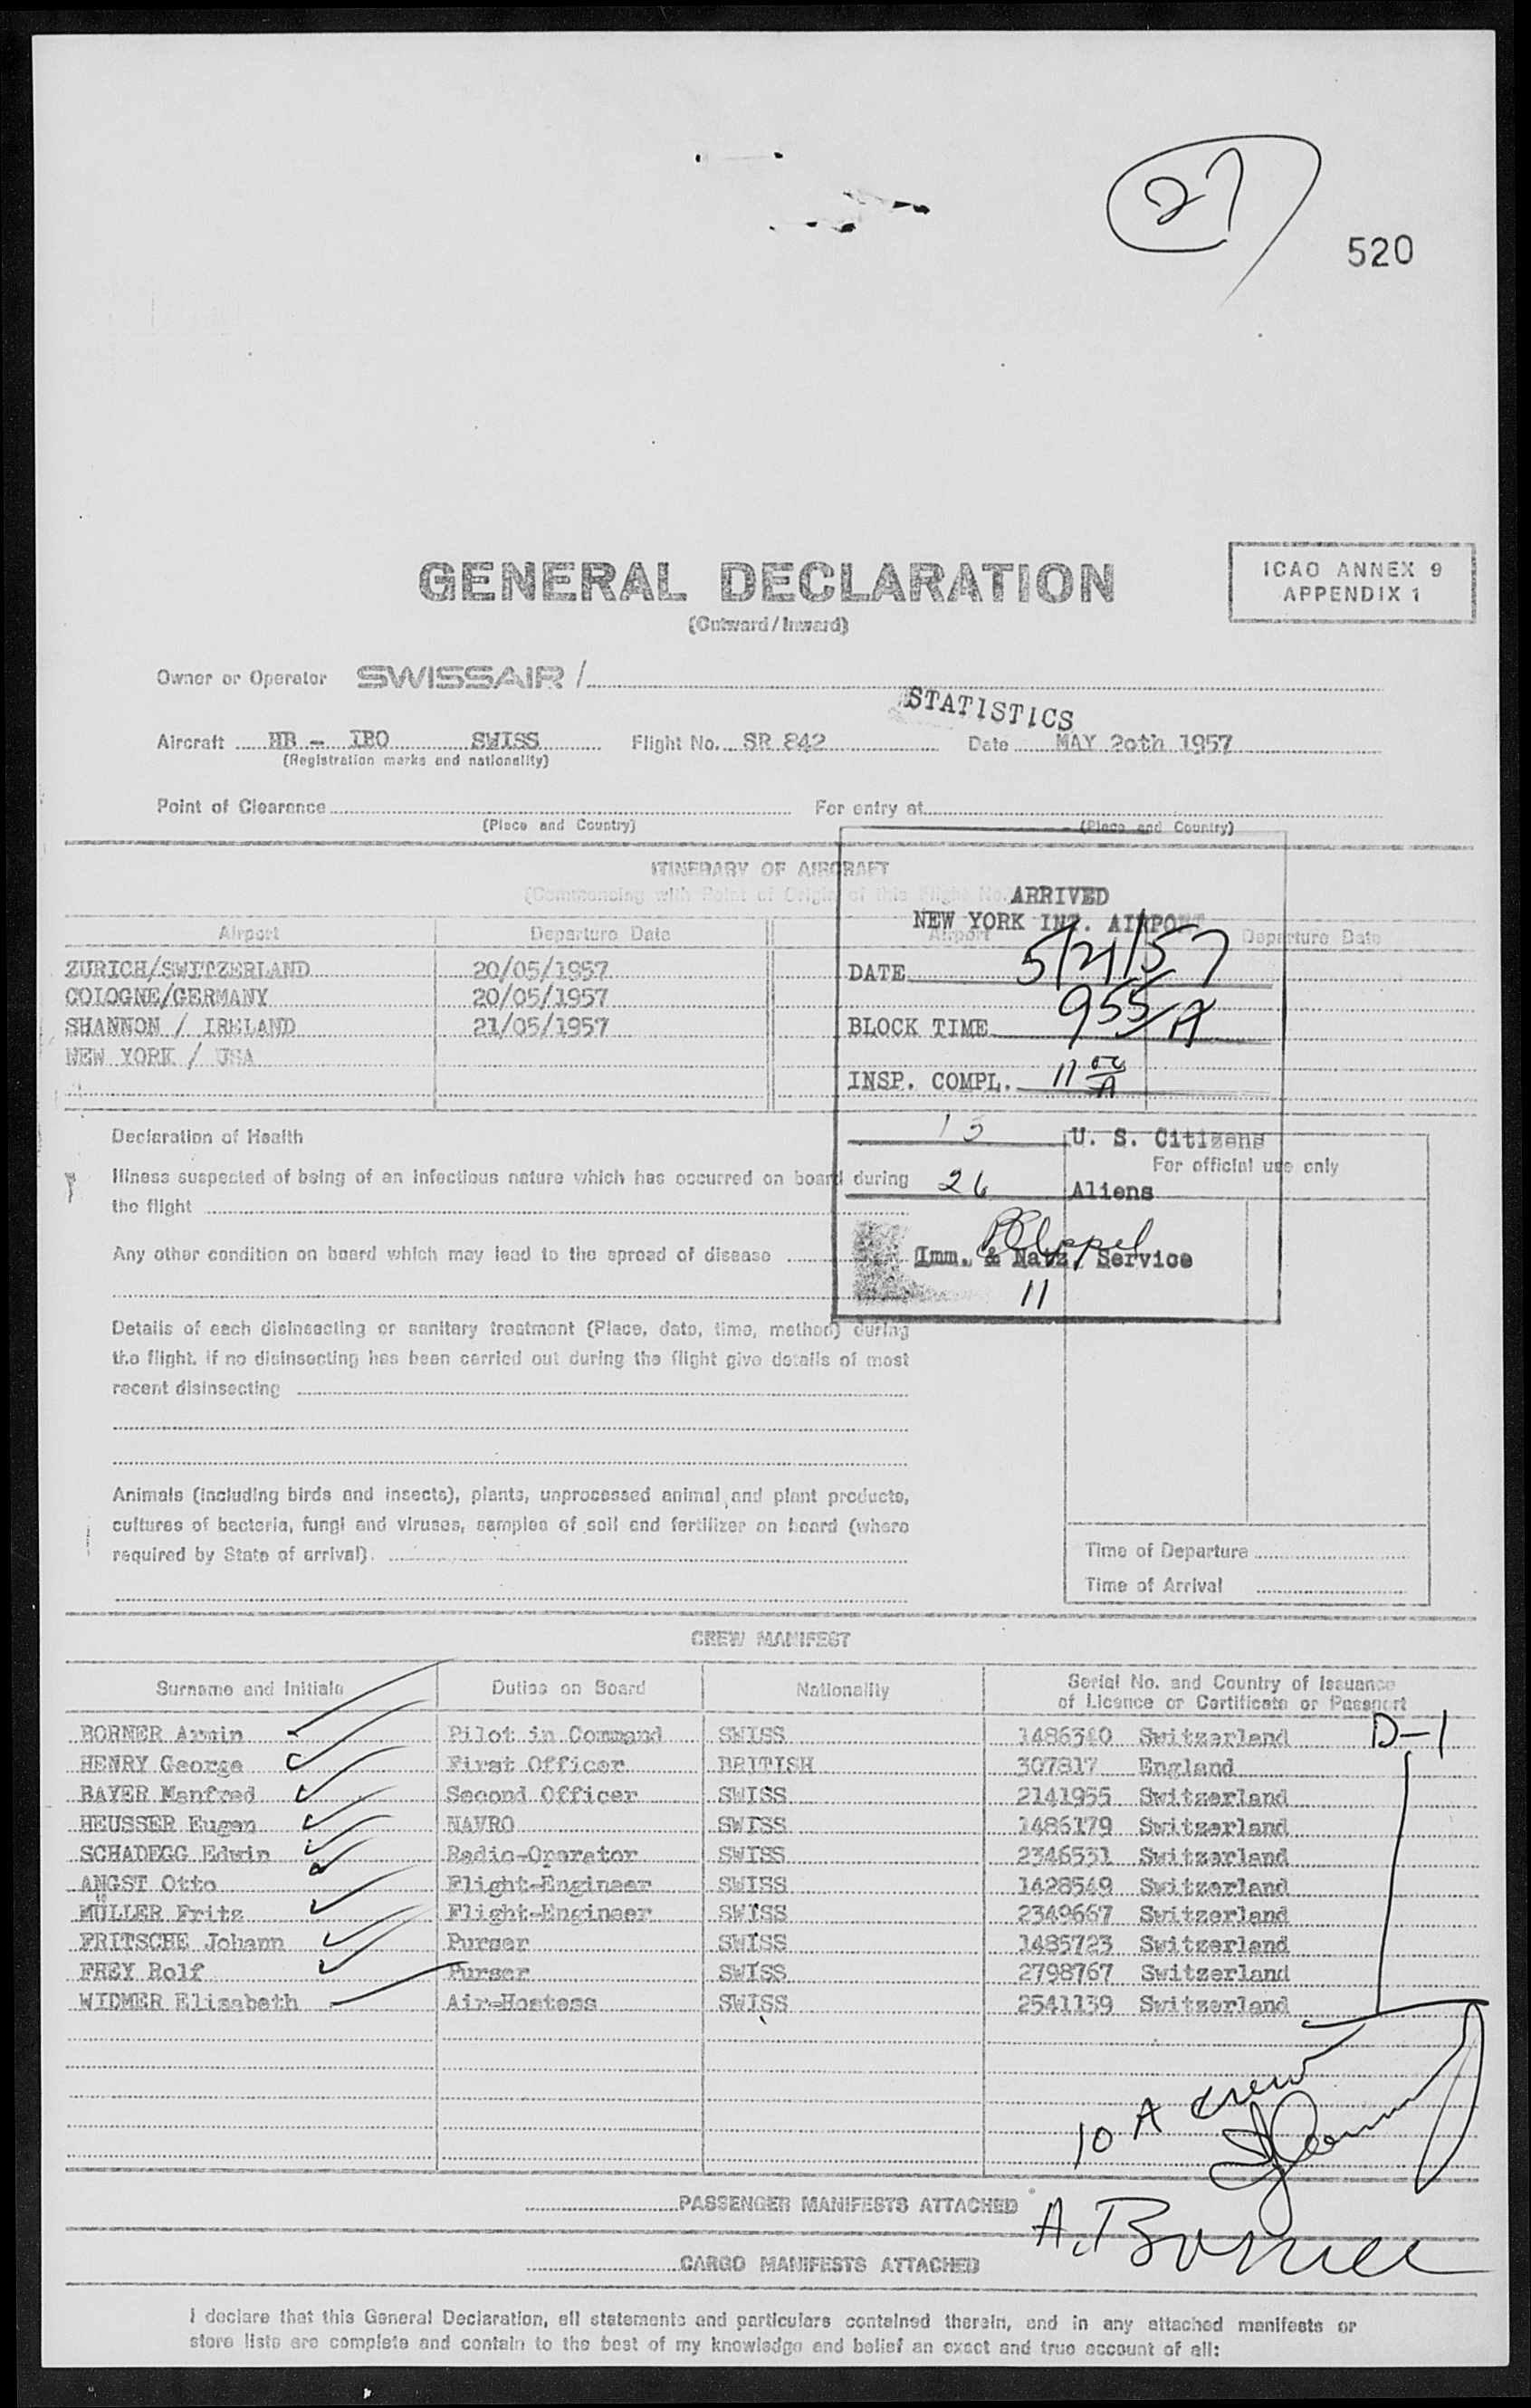 27
520
GENERAL DECLARATION
(Outward / Inward)
ICAO ANNEX 9
APPENDIX 1
Owner or Operator SWISSAIR /
STATISTICS
Aircraft HB - IBO SWISS Flight No. SR 842 Date MAY 20th 1957
(Registration marks and nationality)
Point of Clearance For entry at
(Place and Country) (Place and Country)
ITINERARY OF AIRCRAFT
(Commencing with Point of Origin of this Flight No.
Airport Departure Date Airport Departure Date
ZURICH/SWITZERLAND 20/05/1957
COLOGNE/GERMANY 20/05/1957
SHANNON / IRELAND 21/05/1957
NEW YORK / USA
ARRIVED
NEW YORK INT. AIRPORT
DATE 5/21/57
BLOCK TIME 955/A
INSP. COMPL. 11 00/A
13 U. S. Citizens
26 Aliens
Imm. & Natz. Service
11
Declaration of Health
For official use only
Illness suspected of being of an infectious nature which has occurred on board during
the flight
Any other condition on board which may lead to the spread of disease
Details of each disinsecting or sanitary treatment (Place, date, time, method) during
the flight. If no disinsecting has been carried out during the flight give details of most
recent disinsecting
Animals (including birds and insects), plants, unprocessed animal and plant products,
cultures of bacteria, fungi and viruses, samples of soil and fertilizer on board (where
required by State of arrival).
Time of Departure
Time of Arrival
CREW MANIFEST
Surname and Initials Duties on Board Nationality Serial No. and Country of Issuance
of Licence or Certificate or Passport
BORNER Armin Pilot in Command SWISS 1486340 Switzerland D-1
HENRY George First Officer BRITISH 307817 England
BAYER Manfred Second Officer SWISS 2141955 Switzerland
HEUSSER Eugen NAVRO SWISS 1486179 Switzerland
SCHADEGG Edwin Radio-Operator SWISS 2346531 Switzerland
ANGST Otto Flight-Engineer SWISS 1428549 Switzerland
MÜLLER Fritz Flight-Engineer SWISS 2349667 Switzerland
FRITSCHE Johann Purser SWISS 1485723 Switzerland
FREY Rolf Purser SWISS 2798767 Switzerland
WIDMER Elisabeth Air-Hostess SWISS 2541139 Switzerland
10 A crew
PASSENGER MANIFESTS ATTACHED
A. Borner
CARGO MANIFESTS ATTACHED
I declare that this General Declaration, all statements and particulars contained therein, and in any attached manifests or
store lists are complete and contain to the best of my knowledge and belief an exact and true account of all: